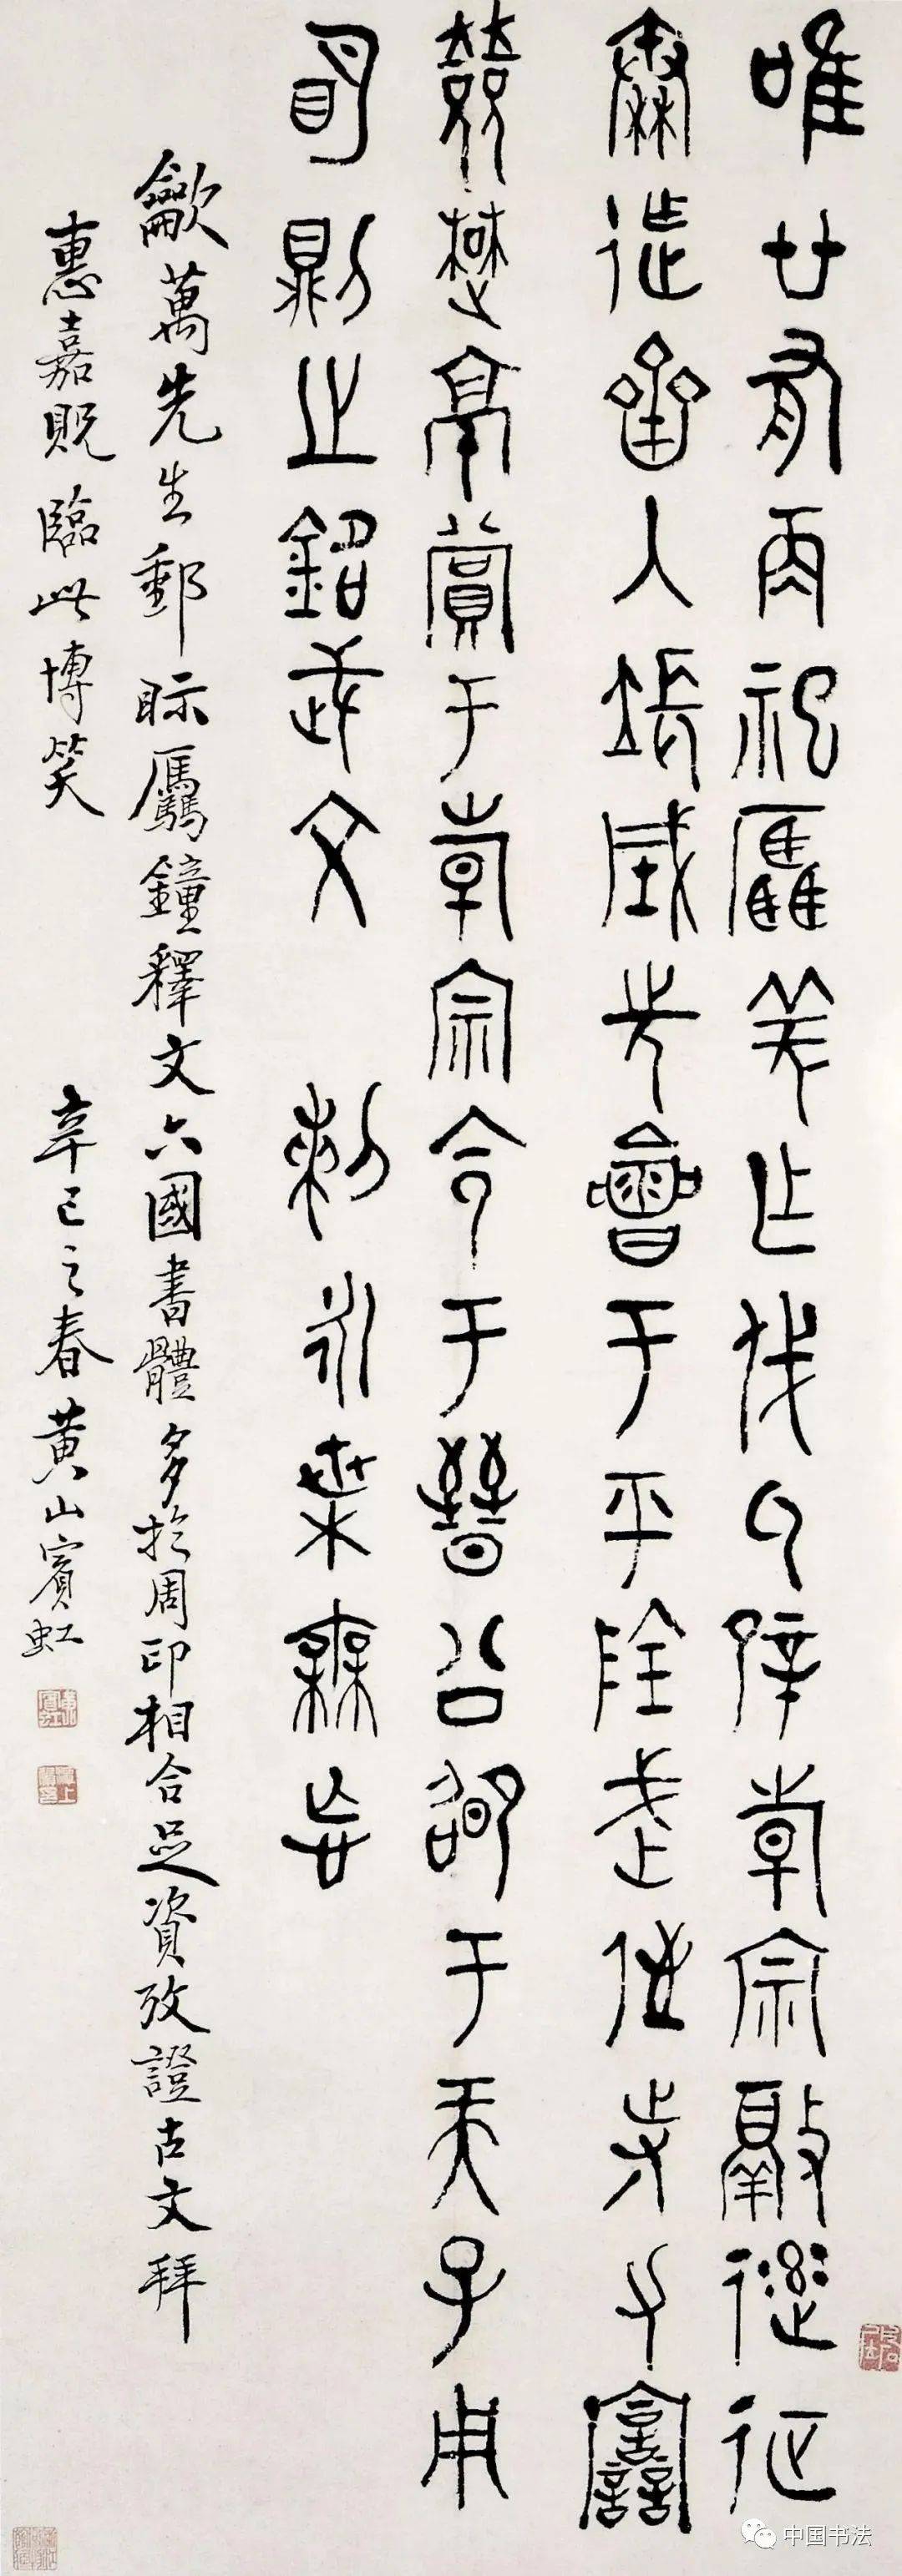 唯廿有再祀驫羌乍伐氒辟倝宗敲逨征
秦迮齊入長城先會于平陰武侄寺力譶
敚楚京賞于倝宗令于晉公邵于天子用
明則之銘武文 剌永枼無忘
萬先生郵眎驫鐘釋文六國書體多於周印相合足資攷證古文拜
惠嘉貺臨此博笑 辛巳之春黃山賓虹
中国书法